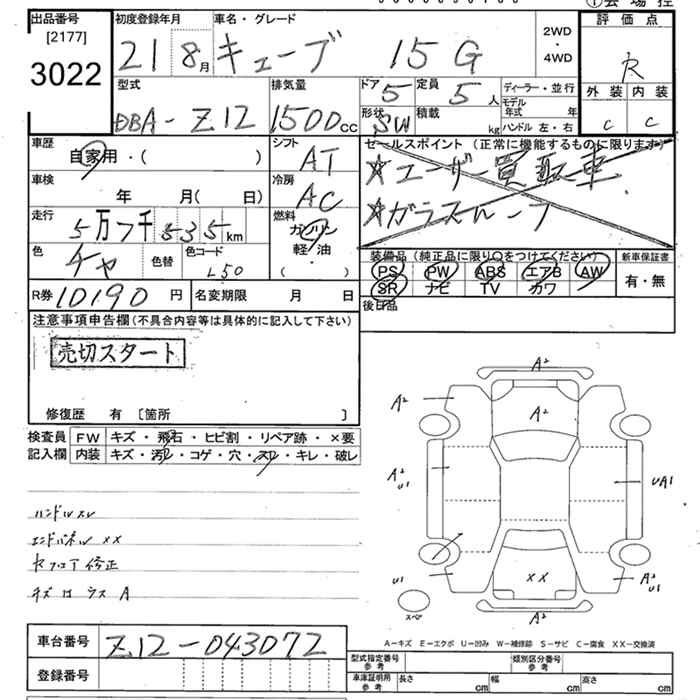 ①会場控
出品番号 初度登録年月 車名・グレード 2WD・4WD 評価点
[2177]
3022 21 8月 キューブ 15G R
外装 内装
C C
型式 排気量 ドア 定員 ディーラー・並行
DBA-Z12 1500cc 5 5人 モデル年式 年
形状 積載 ハンドル 左・右
SW kg
車歴 シフト セールスポイント(正常に機能するものに限ります)
自家用・( ) AT ☆ユーザー買取車
車検 冷房 ☆ガラスルーフ
年 月( 日) AC
走行 燃料
5万7千535km ガソリン
軽・油
( )
色 色替 色コード
チャ L50
装備品(純正品に限り○をつけてください) 新車保証書
PS PW ABS エアB AW 有・無
SR ナビ TV カワ
R券 10190円 名変期限 月 日 後日品
注意事項申告欄(不具合内容等は具体的に記入して下さい)
売切スタート
修復歴 有 [箇所 ]
検査員 FW キズ・飛石・ヒビ割・リペア跡・×要
記入欄 内装 キズ・汚レ・コゲ・穴・スレ・キレ・破レ
ハンドルスレ
エンドパネル XX
キズ ガラス A
A²
A² A²
A² U1 UA1
U1 XX A² U1
スペア A²
A-キズ E-エクボ U-凹み W-補修跡 S-サビ C-腐食 XX-交換済
車台番号 Z12-043072
登録番号
型式指定番号 参考 類別区分番号 参考
車庫証明用 参考 長さ cm 幅 cm 高さ cm